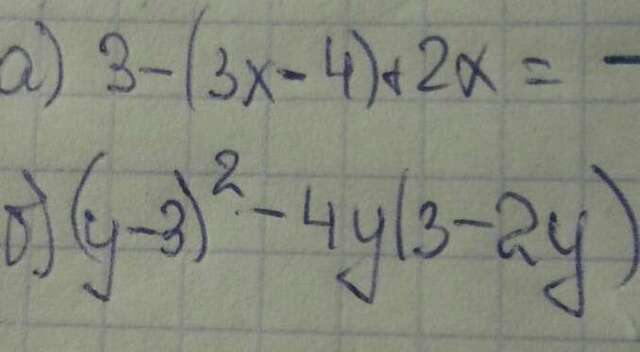 а) 3-(3x-4)+2x = -
б) (y-3)² - 4y(3-2y)